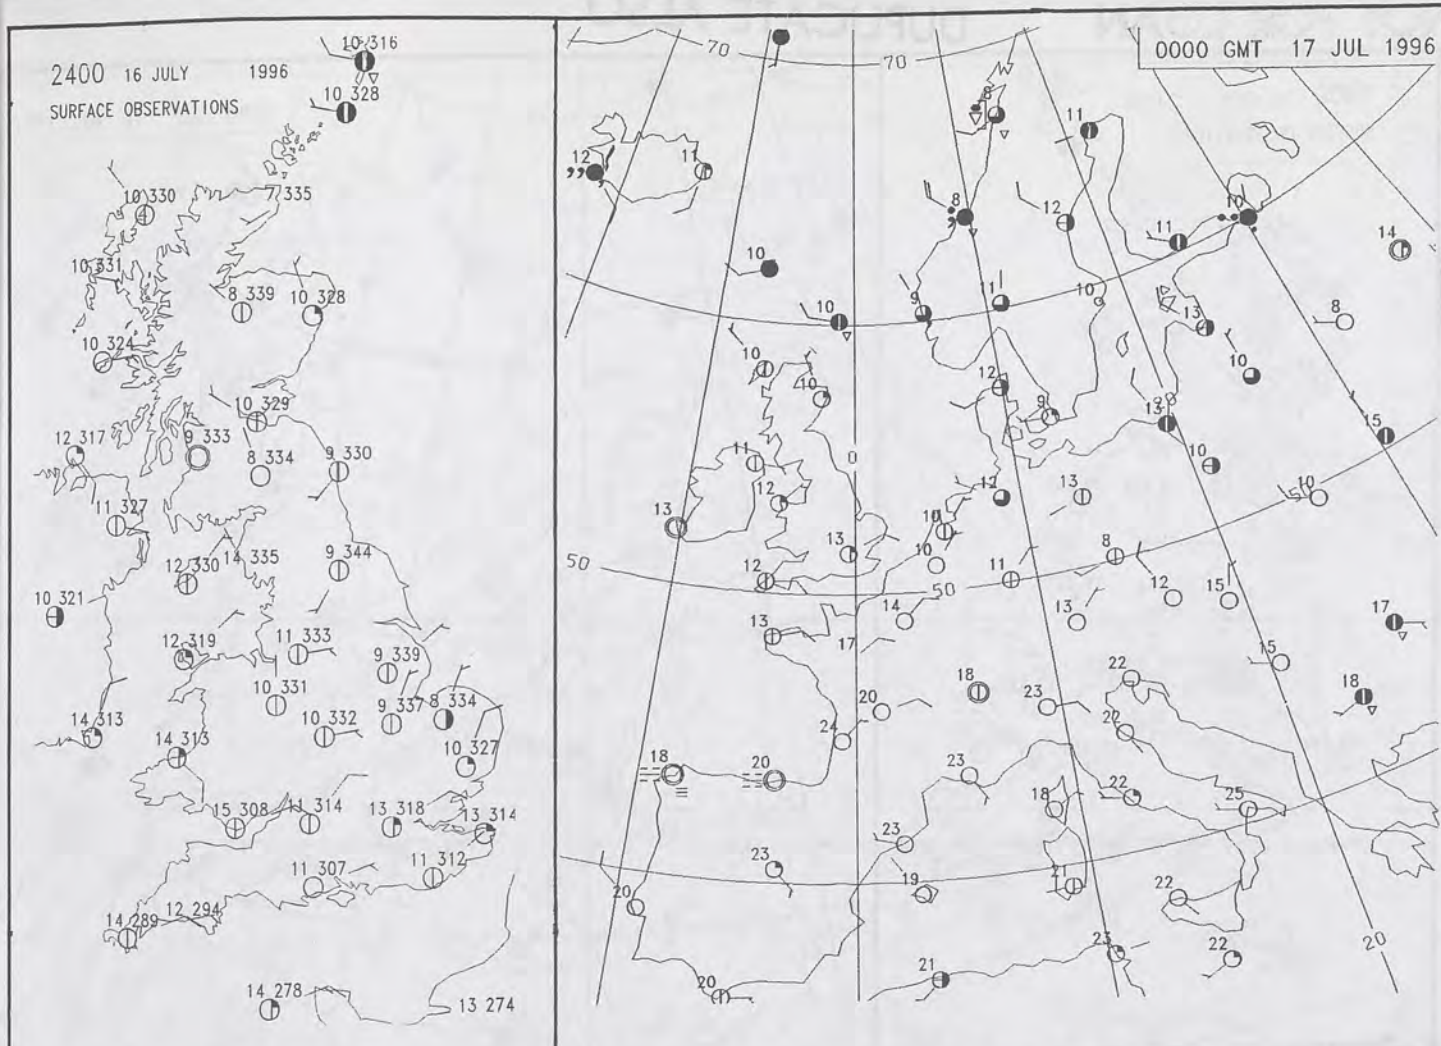 2400 16 JULY 1996
SURFACE OBSERVATIONS
10 316
10 328
10 330
7 335
10 331
8 339
10 328
10 324
10 329
12 317
9 333
8 334
9 330
11 327
14 335
12 330
9 344
10 321
12 319
11 333
9 339
10 331
9 337
8 334
14 313
14 313
10 332
10 327
15 308
11 314
13 318
13 314
11 307
11 312
14 289
12 294
14 278
13 274
0000 GMT 17 JUL 1996
70
70
8
11
12
11
8
12
11
10
14
10
10
9
11
10
13
8
10
10
12
9
13
10
15
11
0
10
12
12
13
10
50
13
10
13
10
50
12
50
11
8
12
15
14
13
13
17
17
15
18
22
18
20
23
22
24
18
20
23
18
22
25
23
23
19
21
22
20
20
23
22
21
20